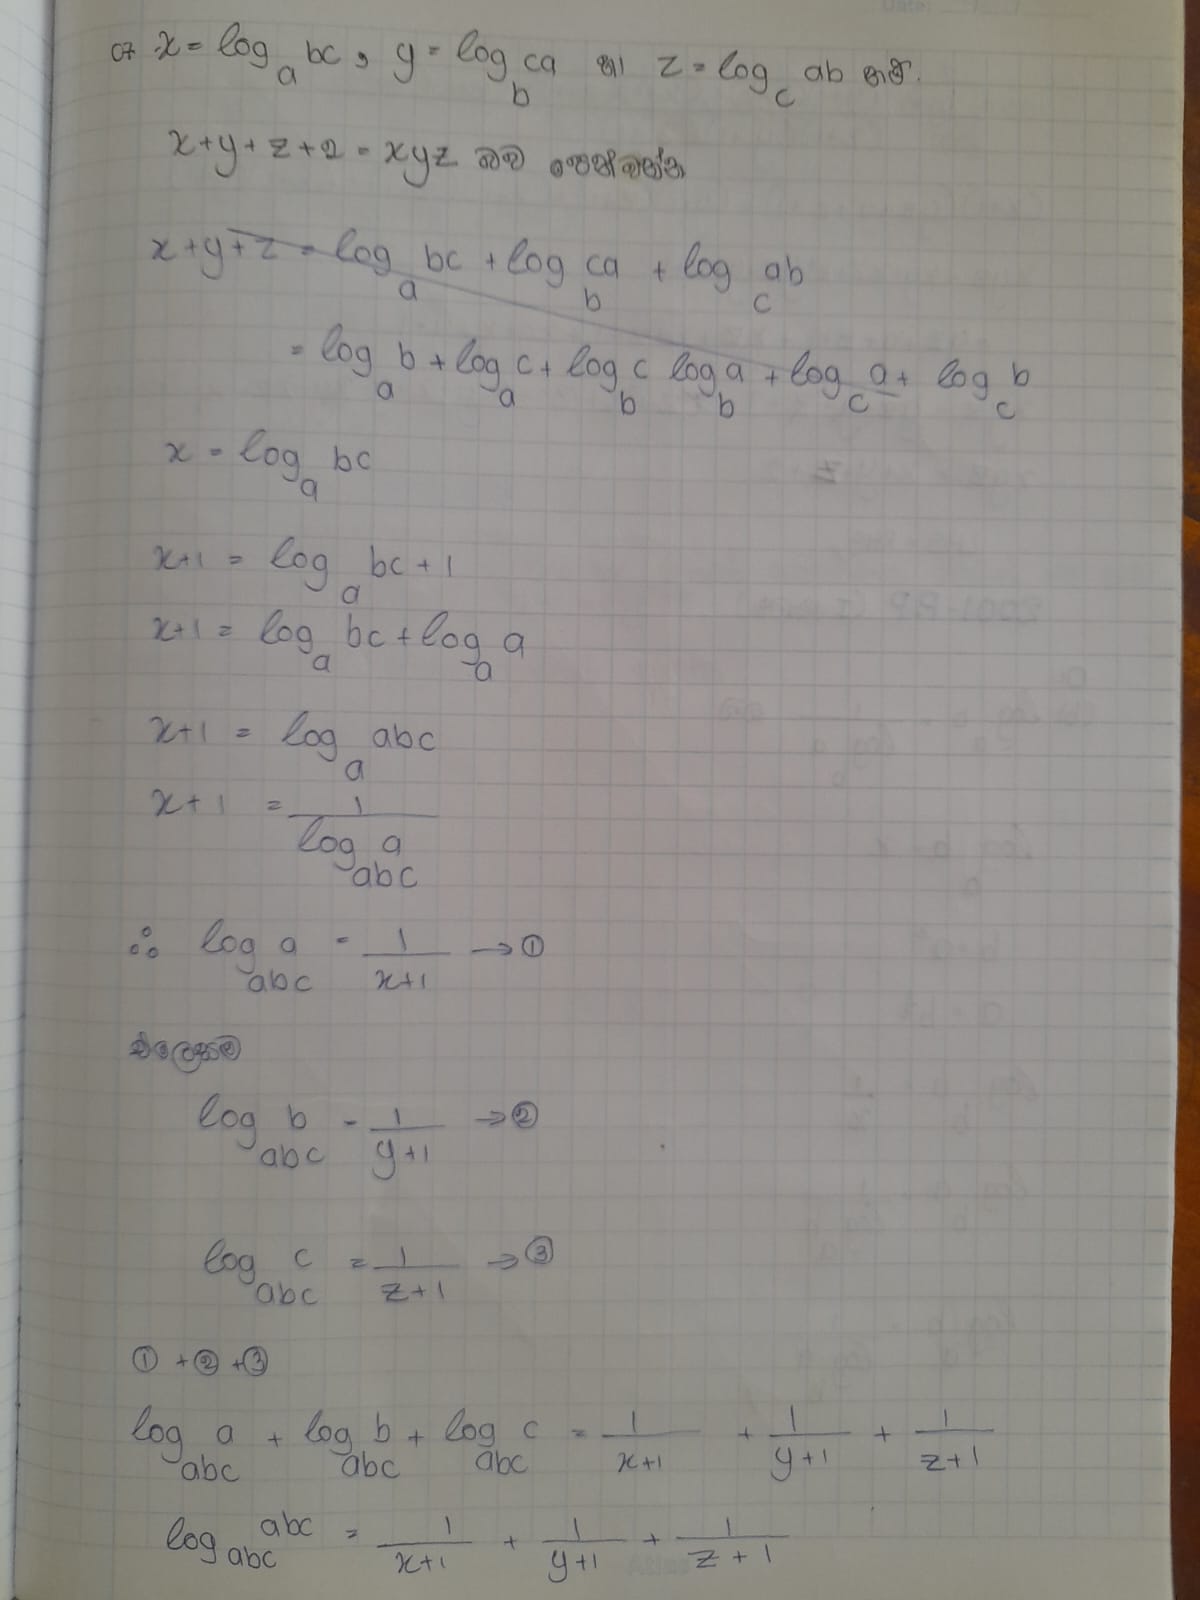 07 x = log_a bc, y = log_b ca හා z = log_c ab නම්.
x+y+z+2 = xyz බව පෙන්වන්න
x+y+z = log_a bc + log_b ca + log_c ab
= log_a b + log_a c + log_b c log_b a + log_c a + log_c b
x = log_a bc
x+1 = log_a bc + 1
x+1 = log_a bc + log_a a
x+1 = log_a abc
x+1 = 1/log_abc a
∴ log_abc a = 1/(x+1) → ①
එලෙසම
log_abc b = 1/(y+1) → ②
log_abc c = 1/(z+1) → ③
① + ② + ③
log_abc a + log_abc b + log_abc c = 1/(x+1) + 1/(y+1) + 1/(z+1)
log_abc abc = 1/(x+1) + 1/(y+1) + 1/(z+1)